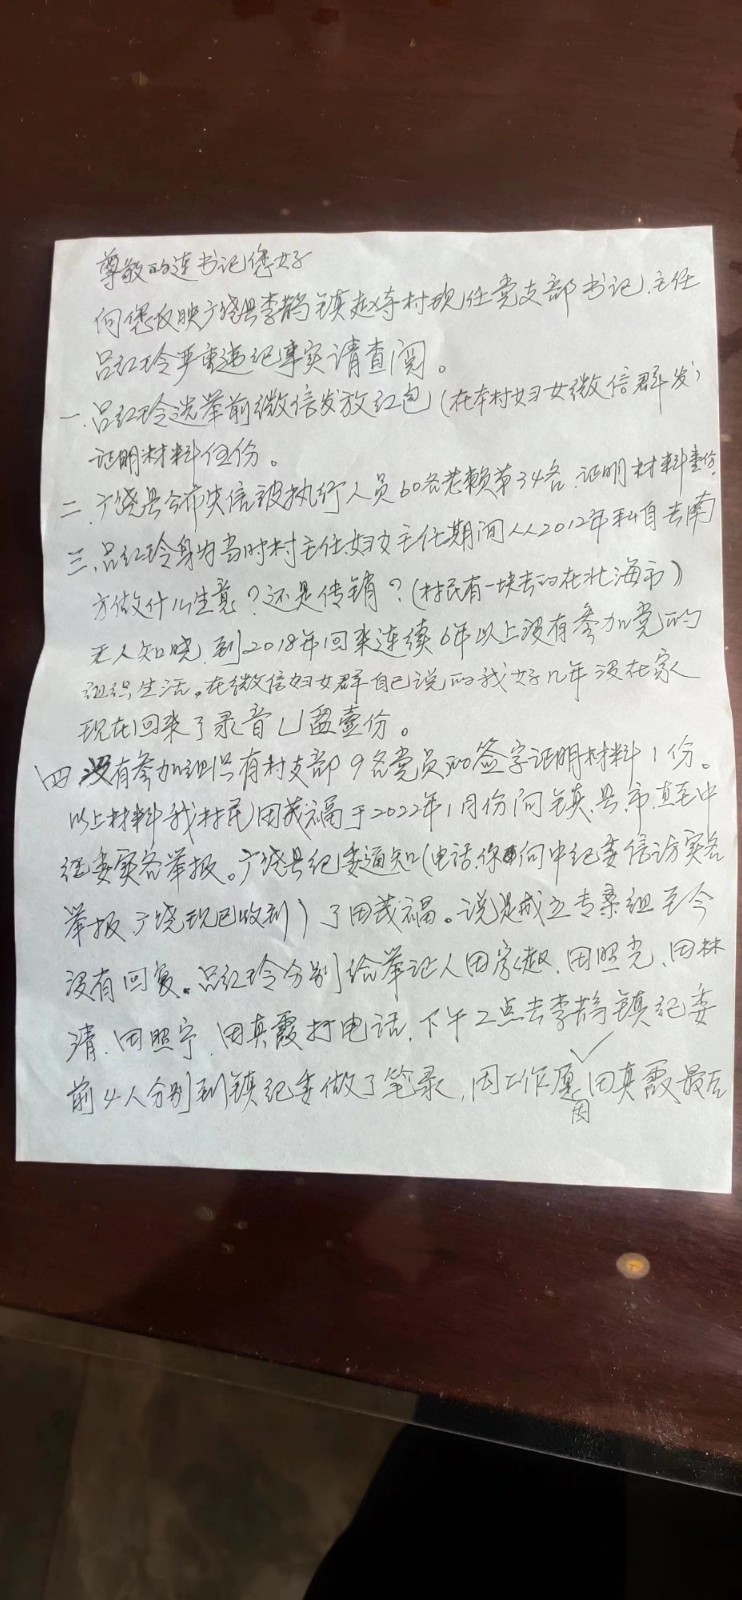 尊敬的连书记您好
向您反映广饶县李鹊镇赵寺村现任党支部书记、主任
吕红玲严重违纪事实请查阅。
一.吕红玲选举前微信发放红包(在本村妇女微信群发)
证明材料 份。
二.广饶县公布失信被执行人员60名老赖第34名.证明材料壹份.
三.吕红玲身为当时村主任妇女主任期间从2012年私自去南
方做什么生意?还是传销?(村民有一块去的在北海市)
无人知晓.到2018年回来连续6年以上没有参加党的
组织生活。在微信妇女群自己说的我好几年没在家
现在回来了录音U盘壹份。
四 没有参加组织有村支部9名党员 签字证明材料1份。
以上材料我(村民)田茂福于2022年1月份向镇.县.市.直至中
纪委实名举报。广饶县纪委通知(电话.你向中纪委信访实名
举报广饶现已收到)了田茂福。说是成立专案组至今
没有回复。吕红玲分别给举证人田 .田照光、田林
清.田照宁.田真霞打电话.下午2点去李鹊镇纪委
前4人分别到镇纪委做了笔录,因工作原因田真霞最后